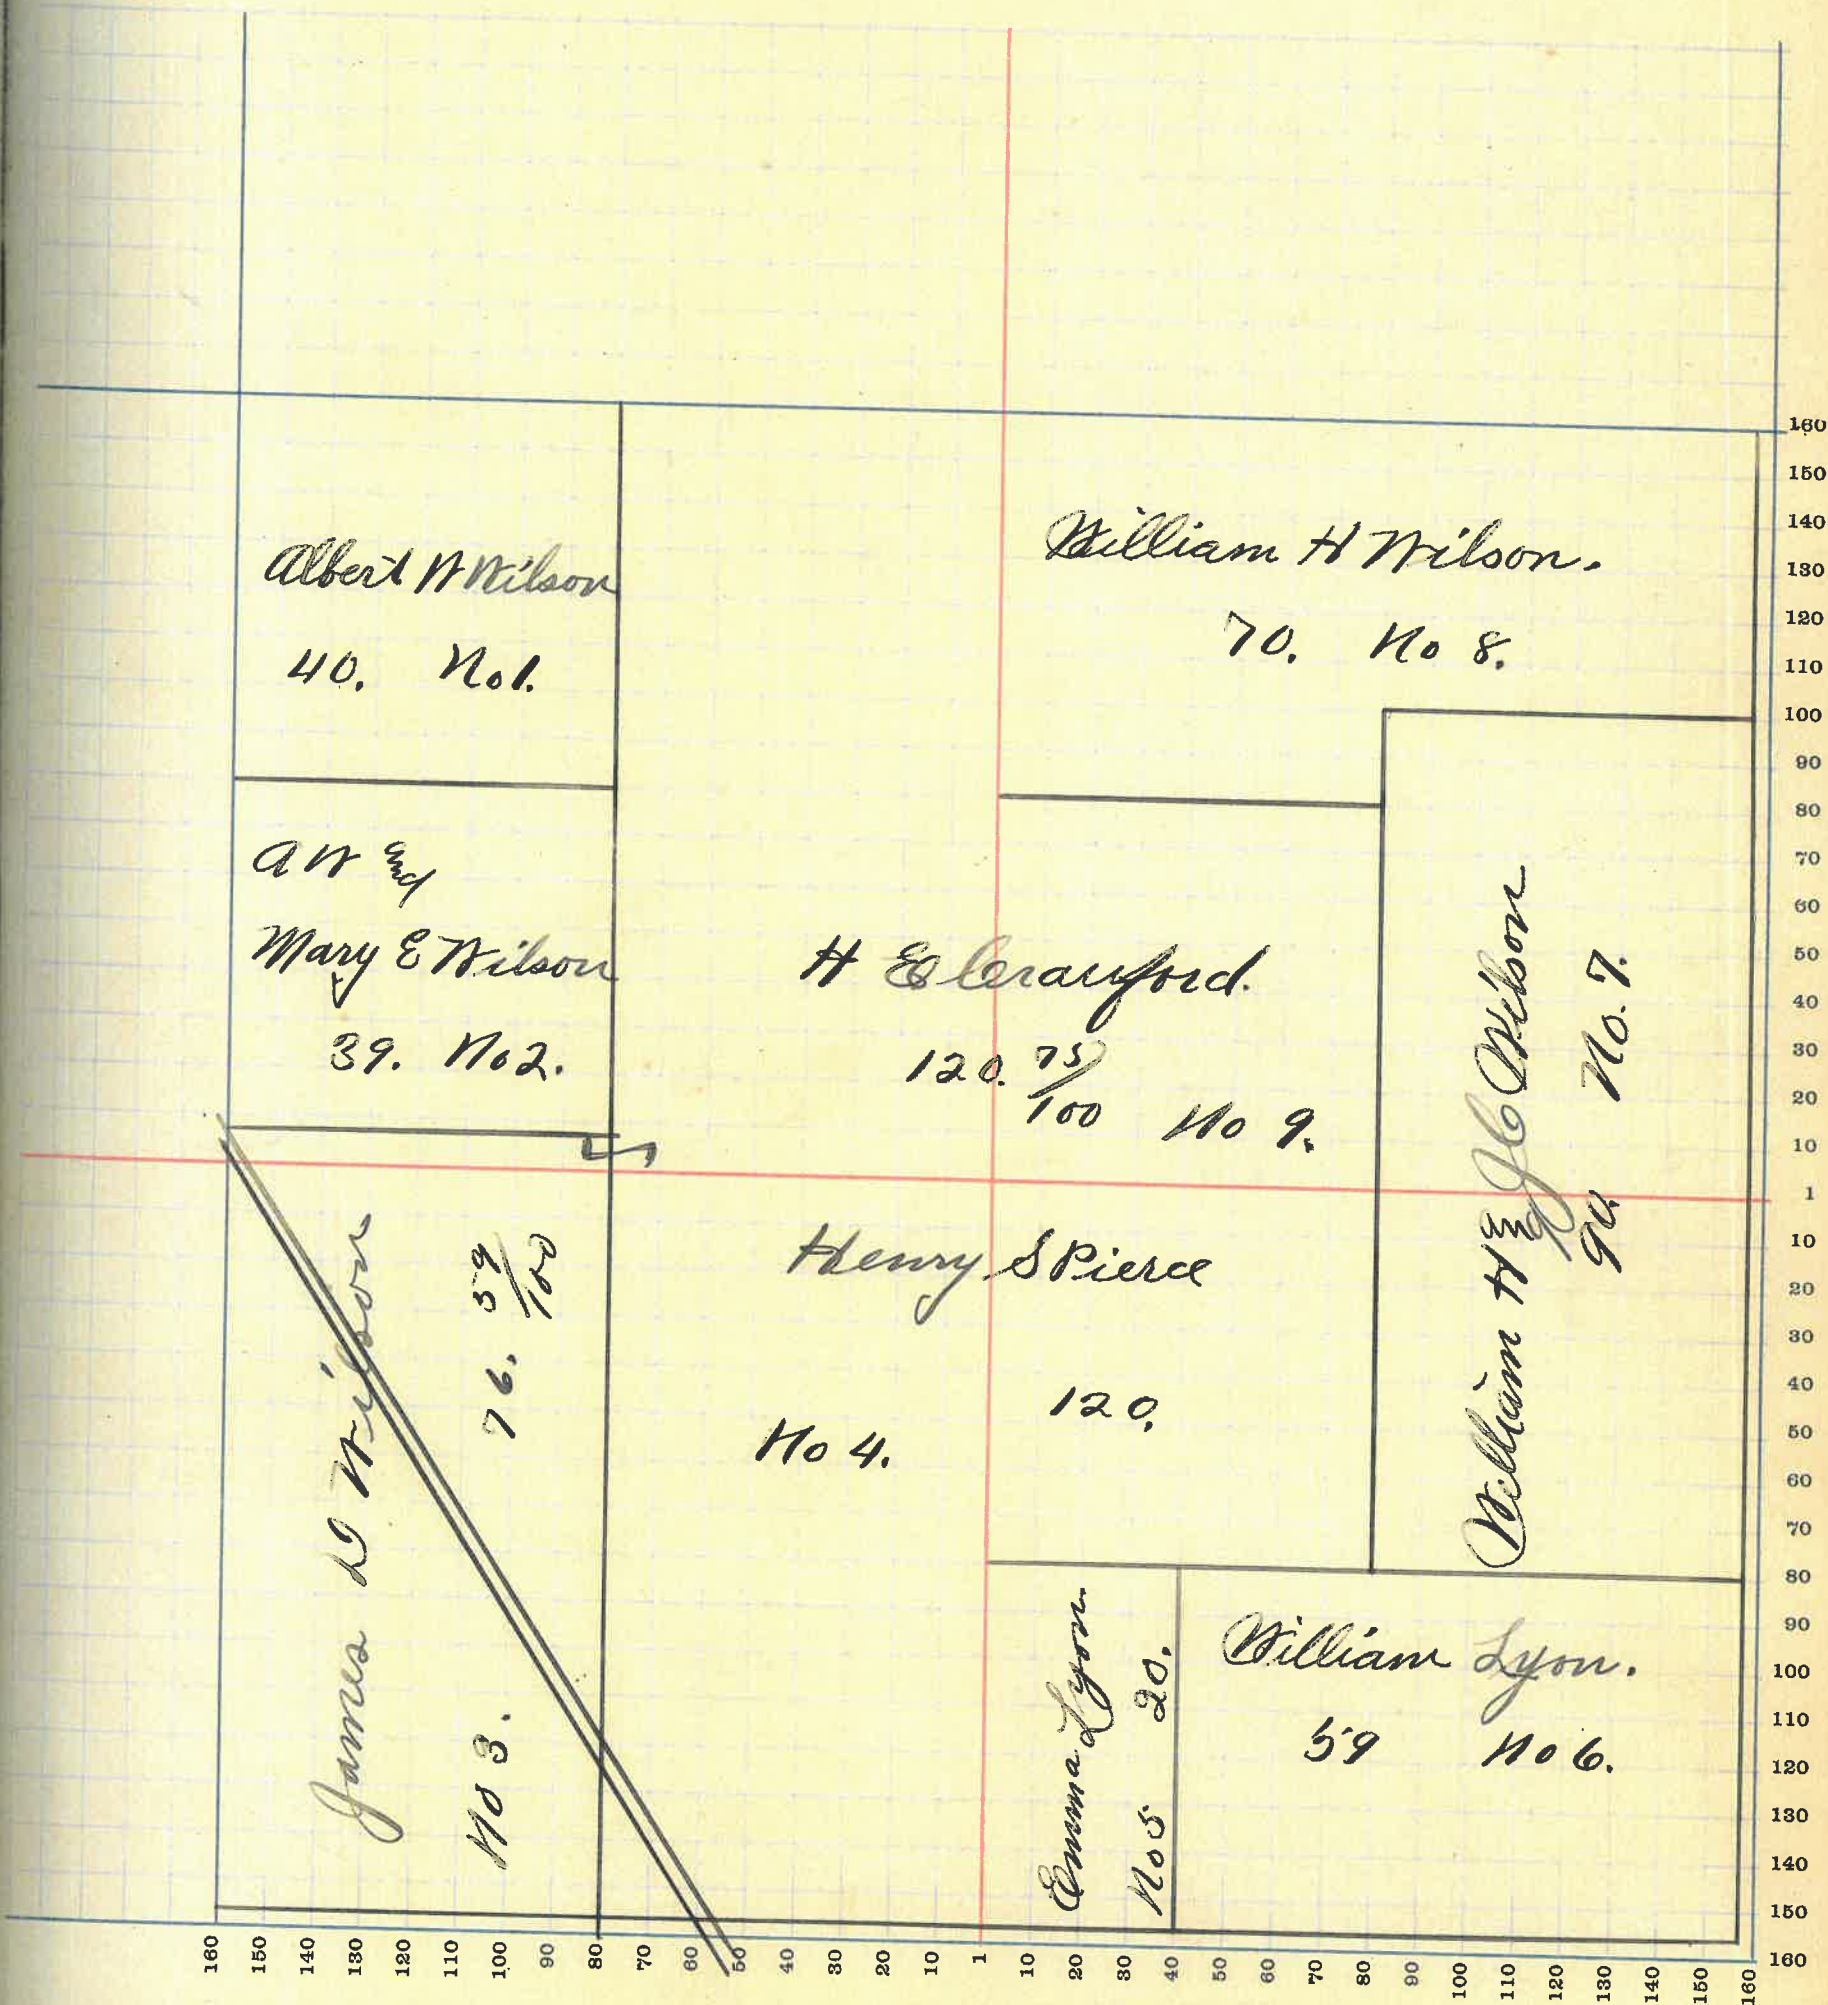 Albert W Wilson
40. No 1.
William H Wilson.
70. No 8.
A W and
Mary E Wilson
39. No 2.
H E Crawford.
120. 75/100 No 9.
William H and J C Wilson
90. No. 7.
James D Wilson
No 3. 76. 59/100
Henry S Pierce
120.
No 4.
Emma Lyon
No 5 20.
William Lyon.
59 No 6.
160
150
140
130
120
110
100
90
80
70
60
50
40
30
20
10
1
10
20
30
40
50
60
70
80
90
100
110
120
130
140
150
160
160 150 140 130 120 110 100 90 80 70 60 50 40 30 20 10 1 10 20 30 40 50 60 70 80 90 100 110 120 130 140 150 160